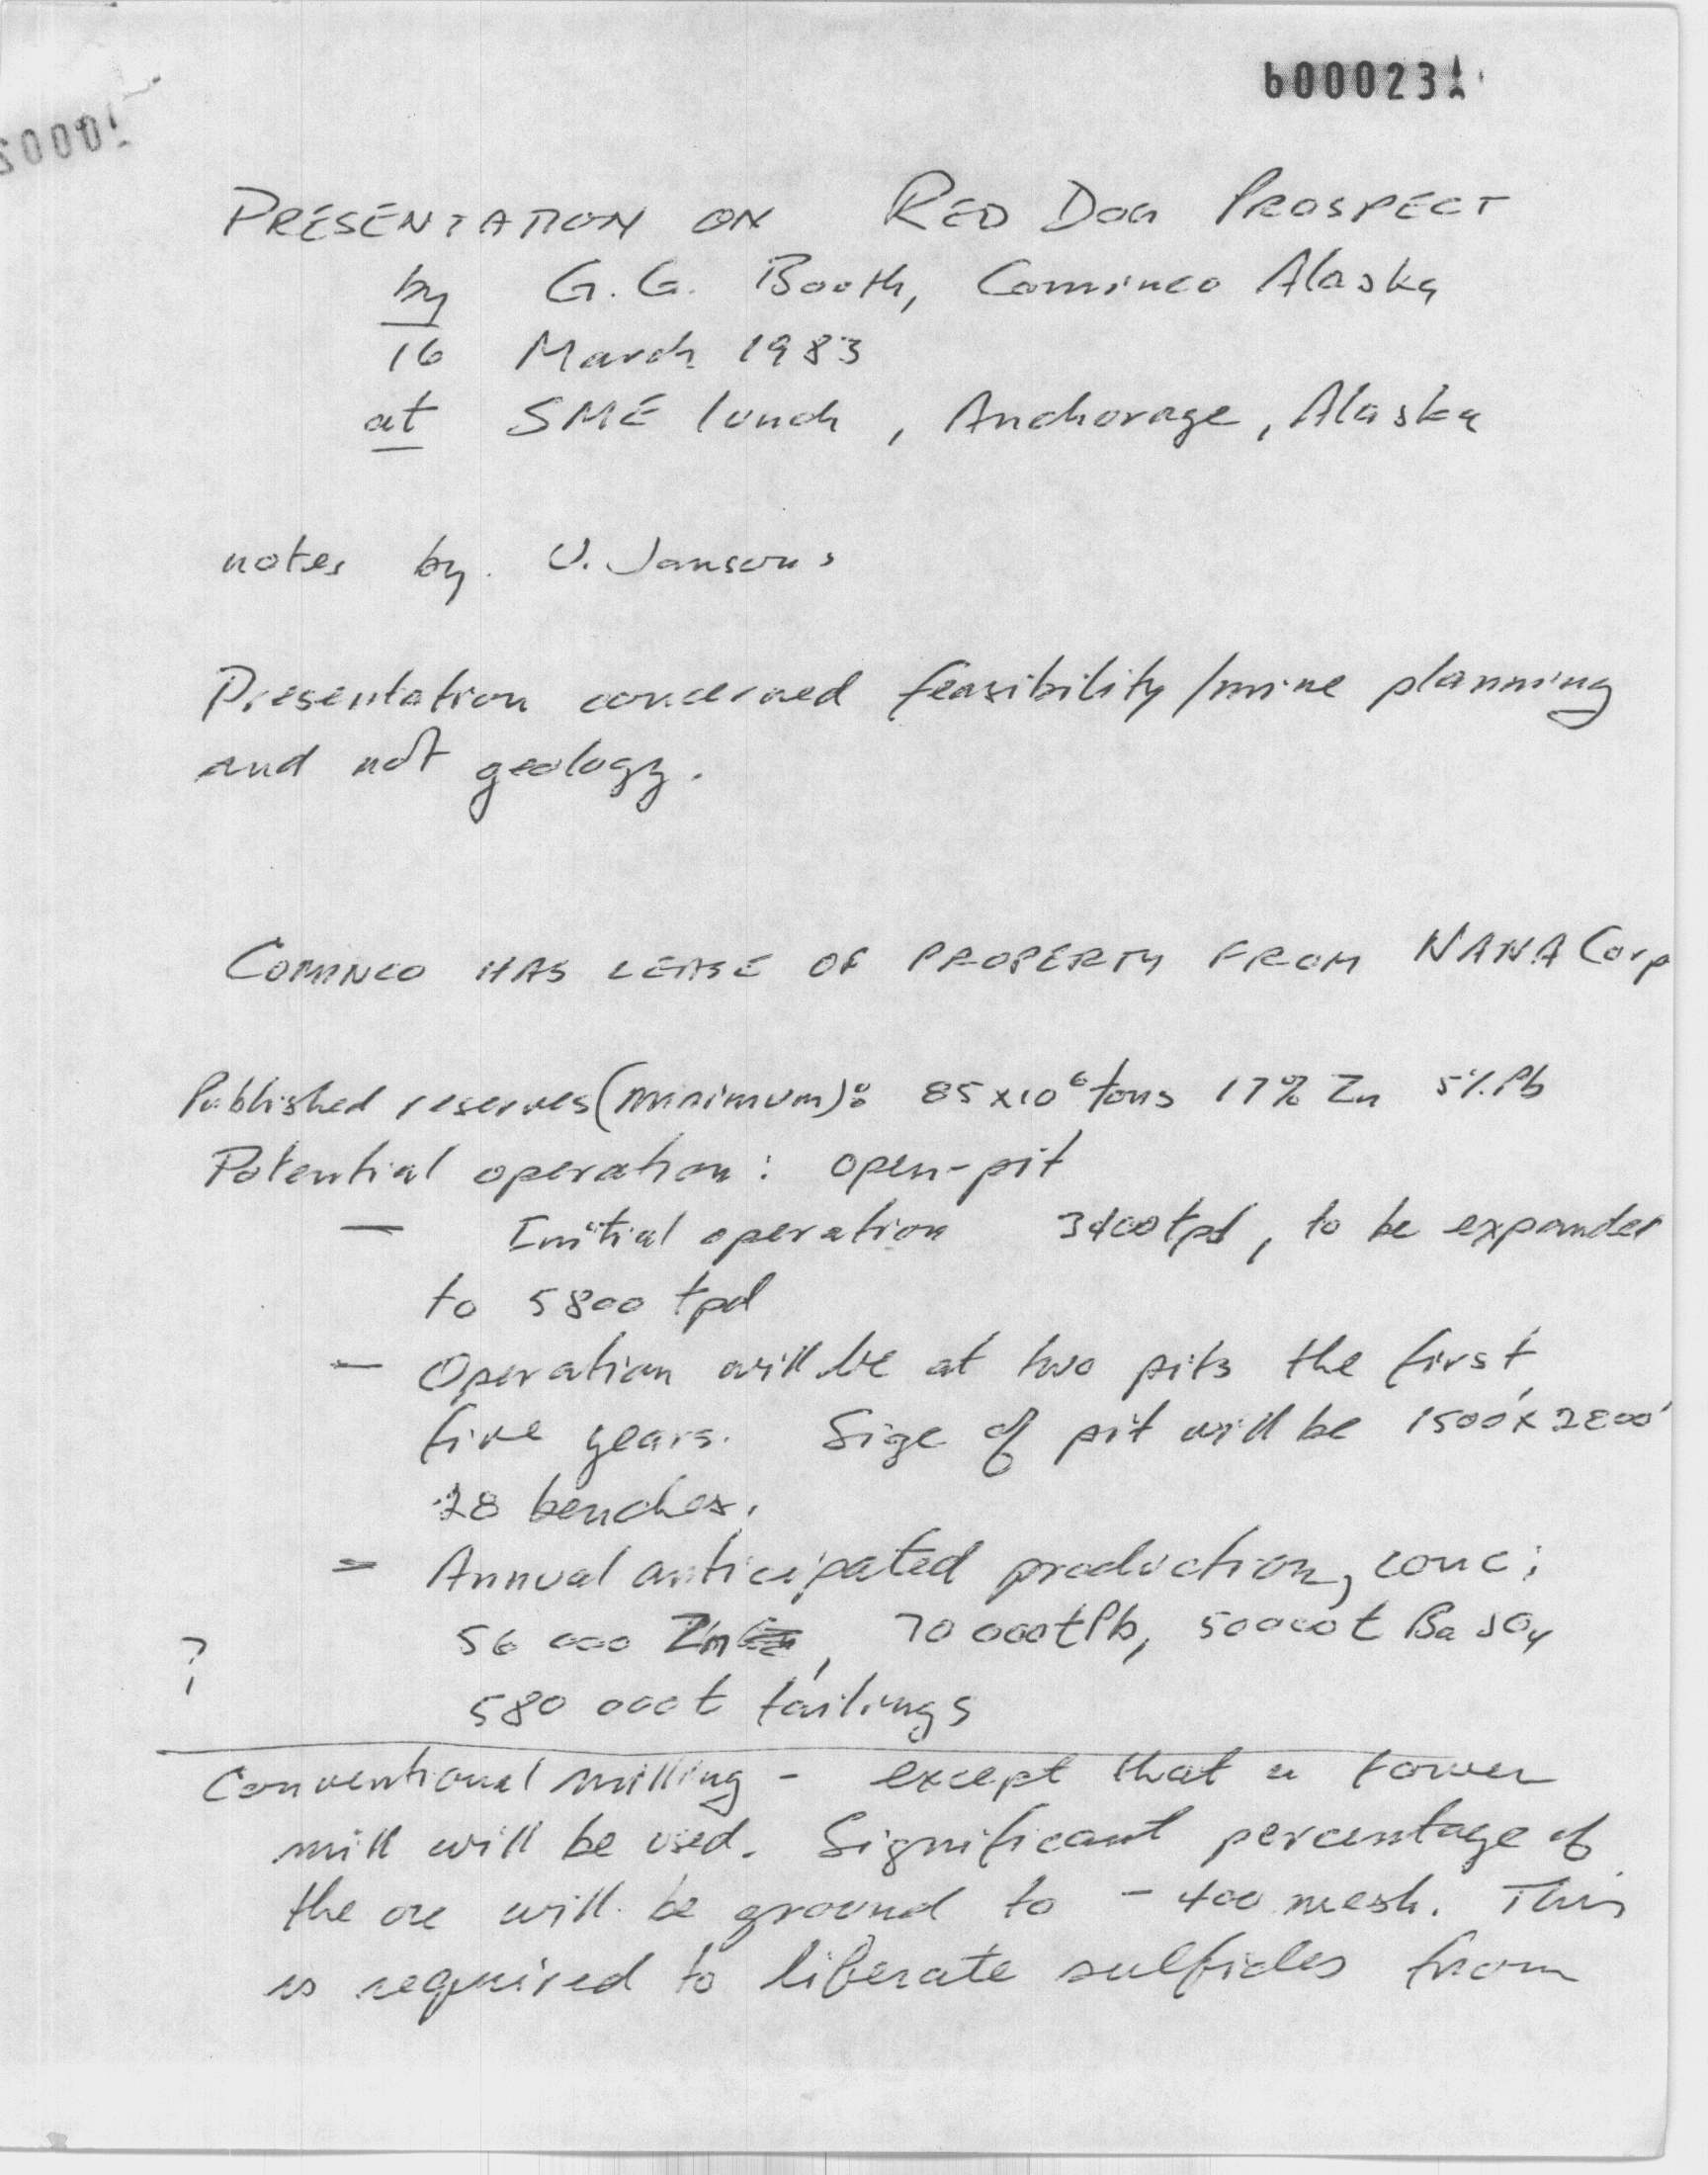 b000023
PRESENTATION ON RED DOG PROSPECT
by G.G. Booth, Cominco Alaska
16 March 1983
at SME lunch, Anchorage, Alaska
notes by U. Jansons
Presentation concerned feasibility/mine planning
and not geology.
COMINCO HAS LEASE OF PROPERTY FROM NANA Corp
Published reserves (minimum): 85 x 10⁶ tons 17% Zn 5% Pb
Potential operation: open-pit
— Initial operation 3400 tpd, to be expanded
to 5800 tpd
— Operation will be at two pits the first
five years. Size of pit will be 1500' x 2800'
28 benches.
= Annual anticipated production, conc:
56 000 Zn, 70 000 t Pb, 50000 t BaSO4
? 580 000 t tailings
Conventional milling - except that a tower
mill will be used. Significant percentage of
the ore will be ground to - 400 mesh. This
is required to liberate sulfides from